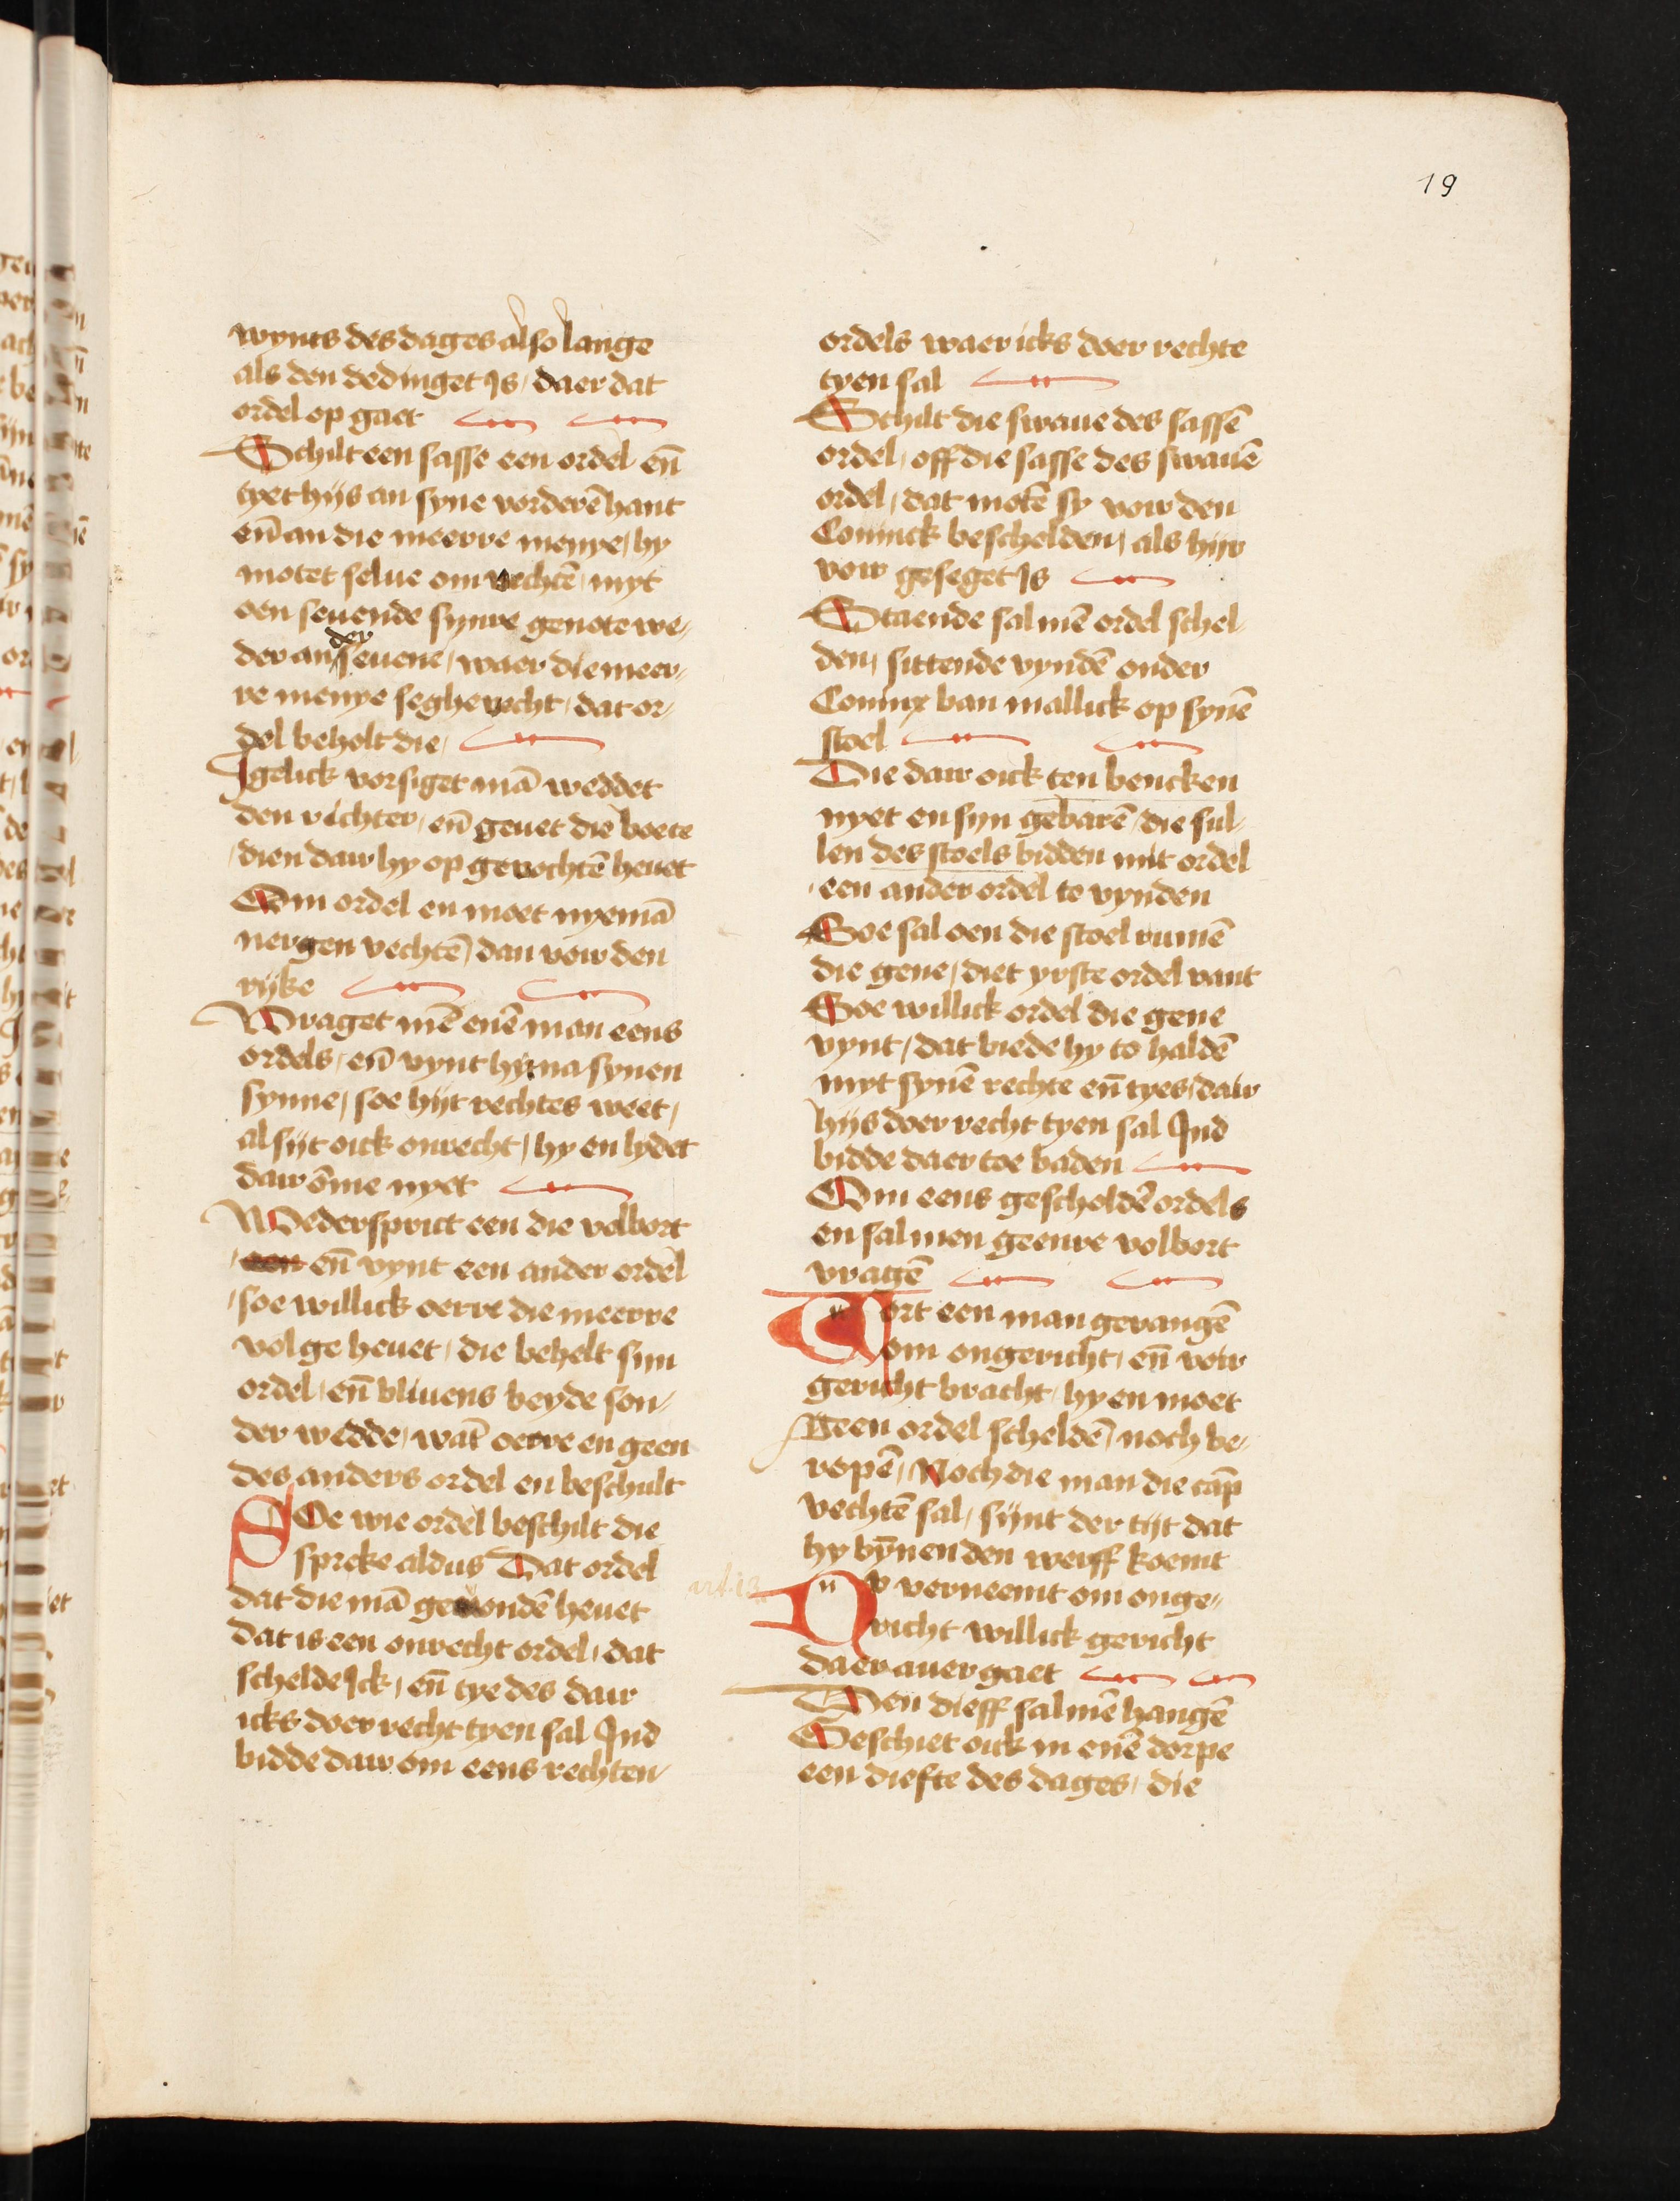 19
wynts des dages also lange
als den dedinget Is / daer dat
ordel op gaet
Schilt een sasse een ordel en̄
tyet hijs an syne vorderē hant
en̄ an die meerre menye / hy
motet selue om vechtē / myt
oen seuende synre genote we⸗
der an der seuene / waer die meer⸗
re menye seghevecht / dat or⸗
del beholt die
Igelick vorsiget mā weddet
den richter / en̄ geuet die boete
/ dien dair hy op gevochtē heuet
Om ordel en moet nyemā
nergen vechtē / dan voir den
rijke
Vraget mē enē man eens
ordels / en̄ vynt hyt na synen
synne / soe hijt rechtes weet /
al sijt oick onrecht / hy en lydet
dair ōme nyet
Wedersprict een die volbort
een en̄ vynt een ander ordel
/ soe willick oerre die meerre
volge heuet / die behelt sijn
ordel / en̄ bliuens beyde son⸗
der wedde / wāt oerre en geen
des anders ordel en beschilt
SOe wie ordel beschilt die
spreke aldus Dat ordel
dat die mā gevondē heuet
dat is een onrecht ordel / dat
schelde Ick / en̄ tye des dair
icks doer recht tyen sal Ind
bidde dair om eens rechten⸗
ordels waer icks doer rechte
tyen sal
Schilt die swaue des sassē
ordel / off die sasse des swauē
ordel / dat motē sy voir den
Coninck beschelden / als hijr
voir geseget Is
Staende sal mē ordel schel⸗
den / sittende vyndē onder
Coninx ban mallick op synē
stoel
Die dair oick ten bencken
nyet en syn gebarē / die sul⸗
len des stoels bidden mit ordel
/ een ander ordel te vynden
Soe sal oen die stoel rumē
die gene / diet yrste ordel vant
Soe willick ordel die gene
vynt / dat biede hy to haldē
myt synē rechte en̄ tyes / dair
hijs doer recht tyen sal Ind
bidde daer toe baden
Om eens gescholdē ordels
en sal men geenre volbort
vragē
Wort een man gevangē
om ongericht / en̄ voir
gericht bracht / hy en moet
Geen ordel scheldē / noch be⸗
ropē / Noch die man die cāp
vechtē sal / sijnt der tijt dat
hy bȳnen den werff koemt
art. 13
NV verneemt om onge⸗
richt willick gericht
daer auer gaet
Den dieff sal mē hangē
Geschiet oick in enē dorpe
een diefte des dages / die